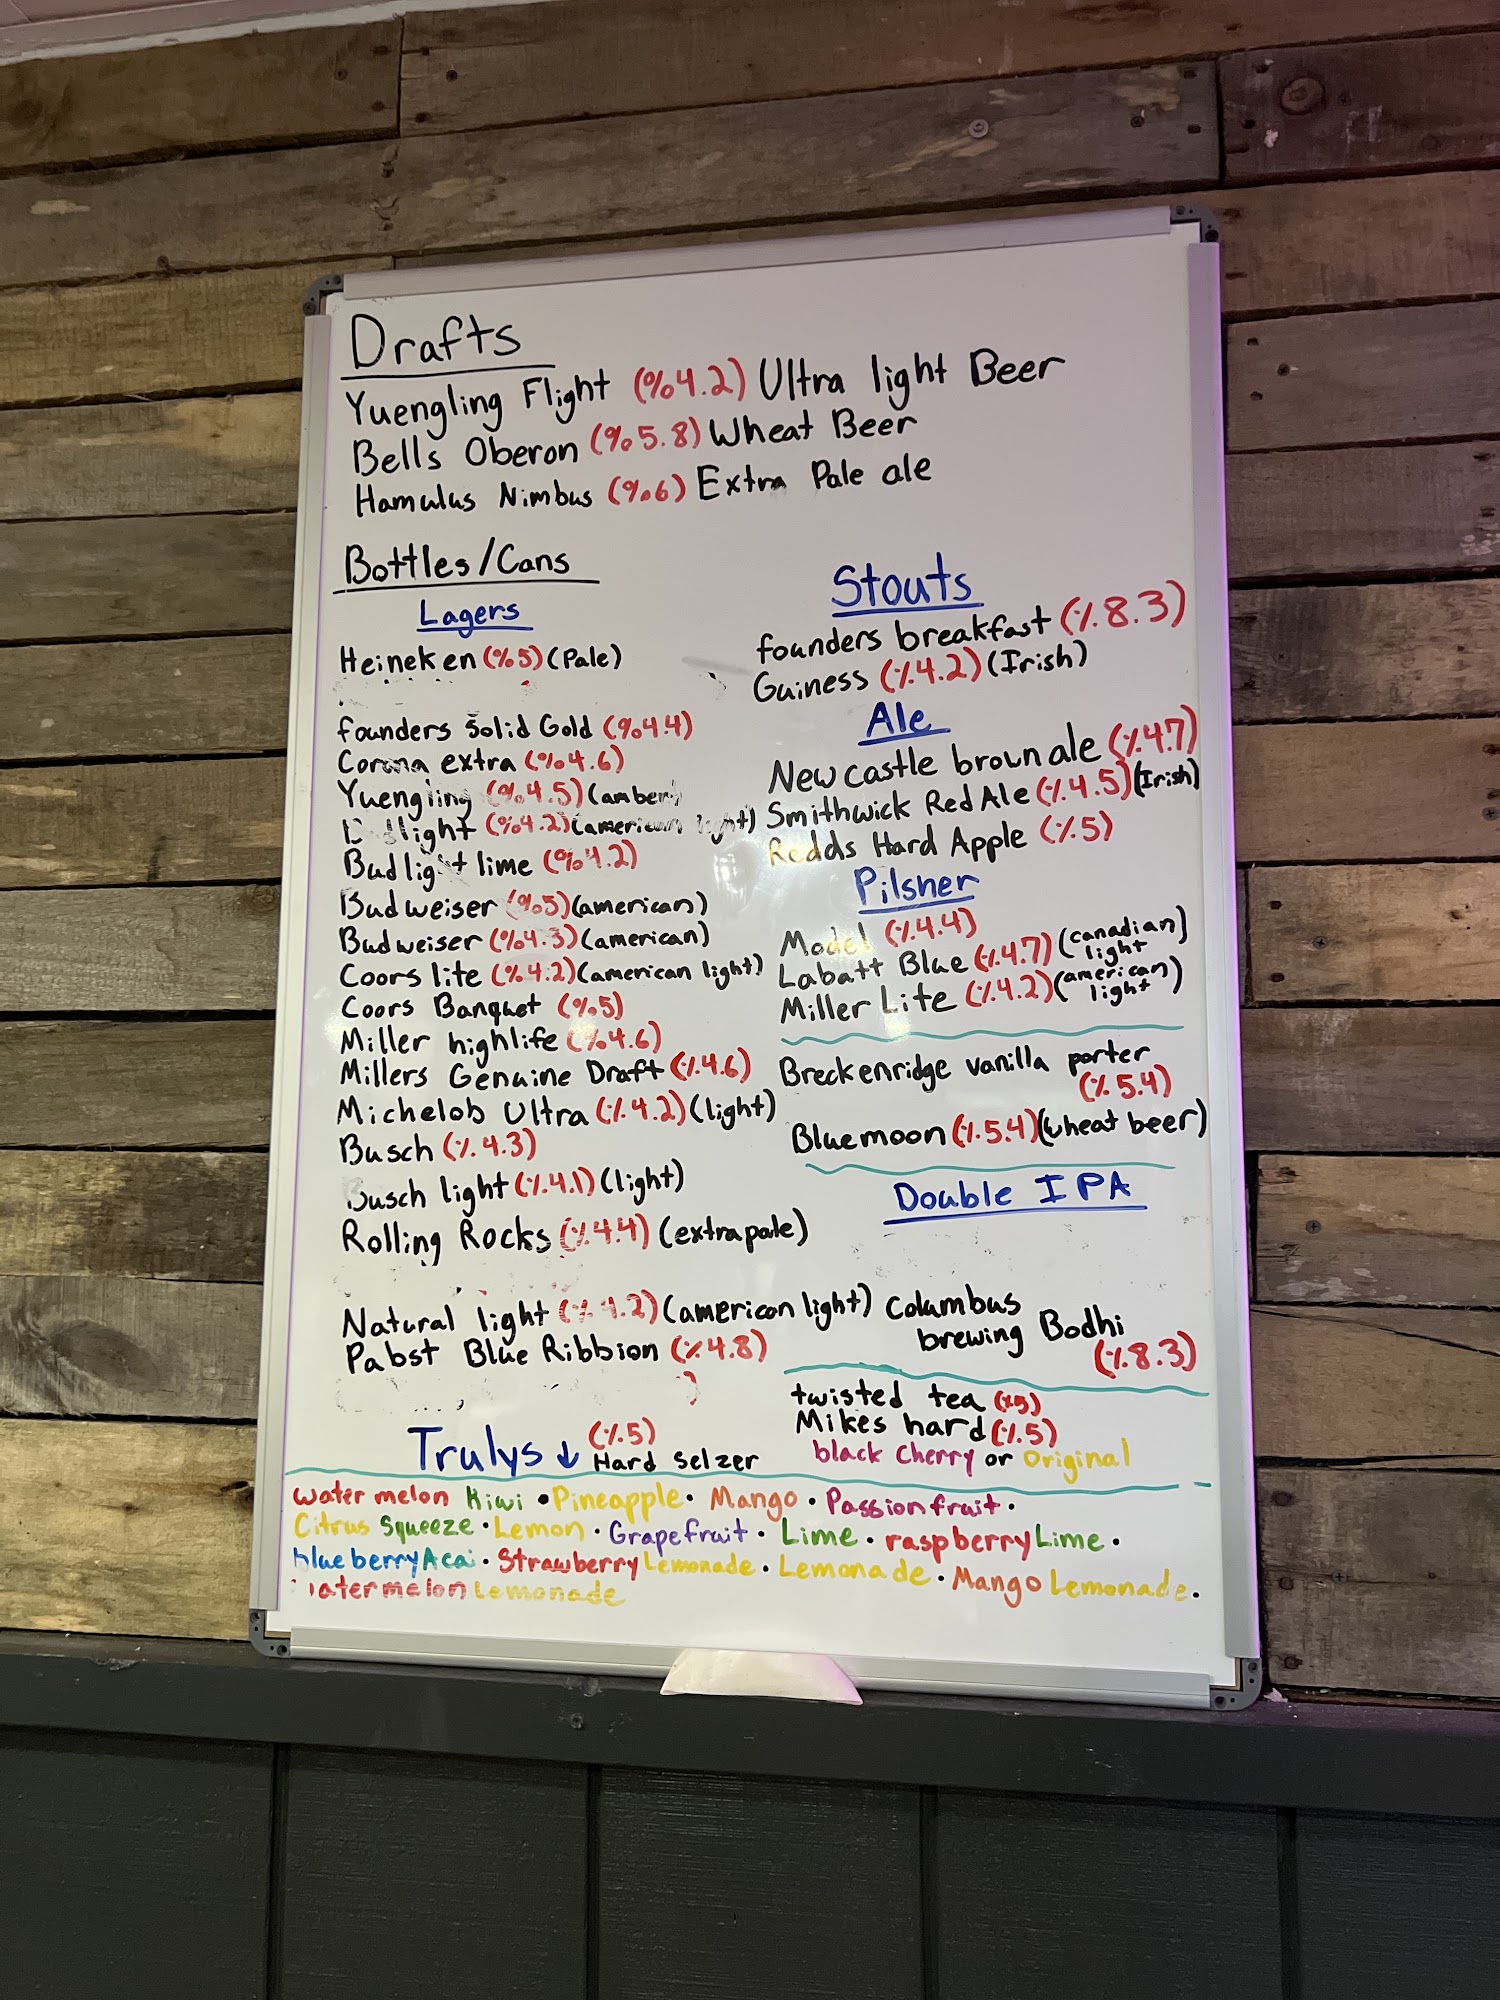 Drafts
Yuengling Flight (%4.2) Ultra light Beer
Bells Oberon (%5.8) Wheat Beer
Hamulus Nimbus (%6) Extra Pale ale
Bottles/Cans
Lagers
Heineken (%5) (Pale)
founders Solid Gold (%4.4)
Corona extra (%4.6)
Yuengling (%4.5) (amber)
light (%4.2) (american light)
Bud light lime (%4.2)
Budweiser (%5) (american)
Budweiser (%4.3) (american)
Coors lite (%4.2) (american light)
Coors Banquet (%5)
Miller highlife (%4.6)
Millers Genuine Draft (%4.6)
Michelob Ultra (%4.2) (light)
Busch (%4.3)
Busch light (%4.1) (light)
Rolling Rocks (%4.4) (extra pale)
Natural light (%4.2) (american light)
Pabst Blue Ribbion (%4.8)
Stouts
founders breakfast (%8.3)
Guiness (%4.2) (Irish)
Ale
New castle brown ale (%4.7)
Smithwick Red Ale (%4.5) (Irish)
Redds Hard Apple (%5)
Pilsner
Model (%4.4)
Labatt Blue (%4.7) (canadian light)
Miller Lite (%4.2) (american light)
Breckenridge vanilla porter
(%5.4)
Bluemoon (%5.4) (wheat beer)
Double IPA
Columbus
brewing Bodhi
(%8.3)
twisted tea (%5)
Mikes hard (%5)
black Cherry or Original
Trulys ↓ (%5)
Hard Selzer
Watermelon Kiwi • Pineapple • Mango • Passion fruit •
Citrus Squeeze • Lemon • Grapefruit • Lime • raspberry Lime •
blueberry Acai • Strawberry Lemonade • Lemonade • Mango Lemonade •
watermelon Lemonade